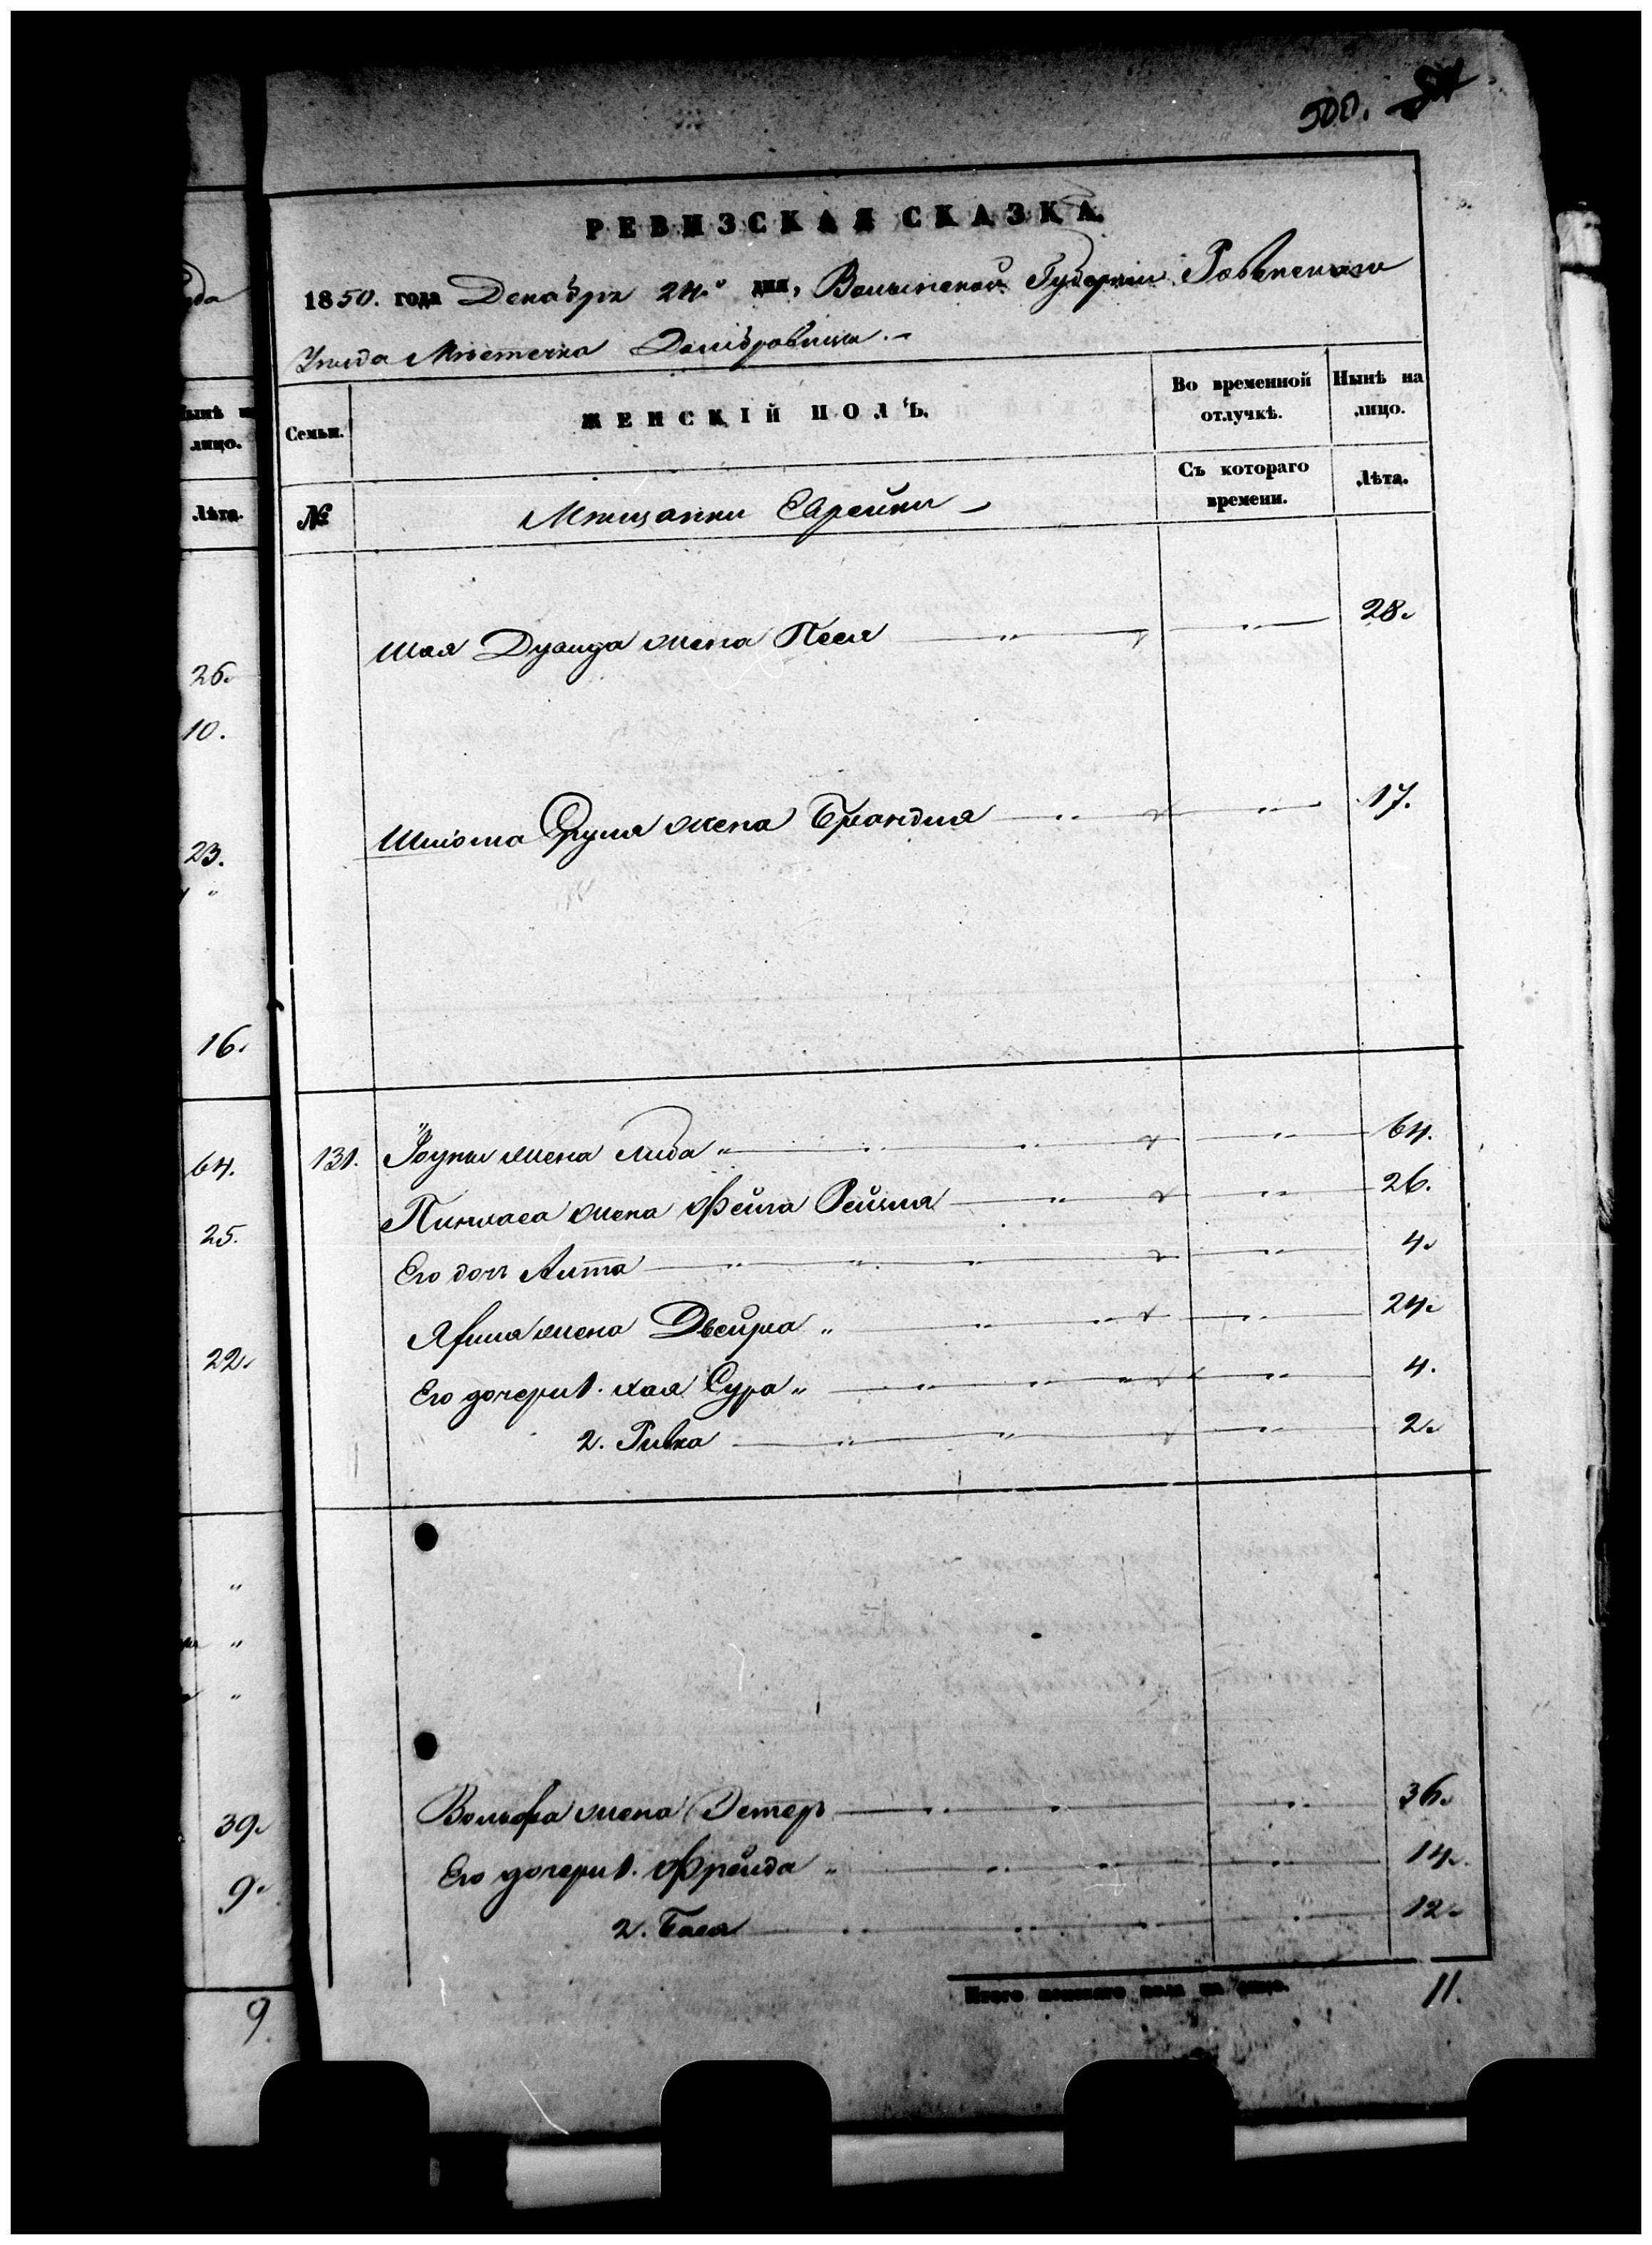 500.
РЕВИЗСКАЯ СКАЗКА.
1850. года Декабря 24.го дня, Волынской Губерніи Ровенскаго
Уѣзда Мѣстечка Домбровицы. –
Семьи.
ЖЕНСКІЙ ПОЛЪ.
Во временной отлучкѣ.
Нынѣ на лицо.
№
Мѣщанки Еврейки –
Съ котораго времени.
Лѣта.
Шая жена Песя 28.
Шліома Сруля жена Брандля 17.
131. жена Либа " 64.
Пинхаса жена Фейга Рейзля 26.
Его дочь Алта 4.
жена Двейра " 24.
Его дочери 1. Хая Сура " 4.
2. Ривка 2.
Вольфа жена Эстер 36.
Его дочери 1. Фрейда " 14.
2. Бася 12.
Итого женскаго пола на лицо. 11.
Нынѣ на
лицо.
Лѣта.
26.
10.
23.
16.
64.
25.
22.
39.
9.
9.